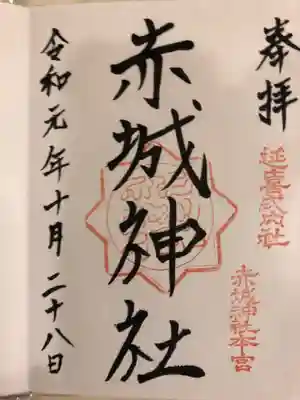 奉拝
延喜式内社
赤城神社本宮
赤城神社
令和元年十月二十八日